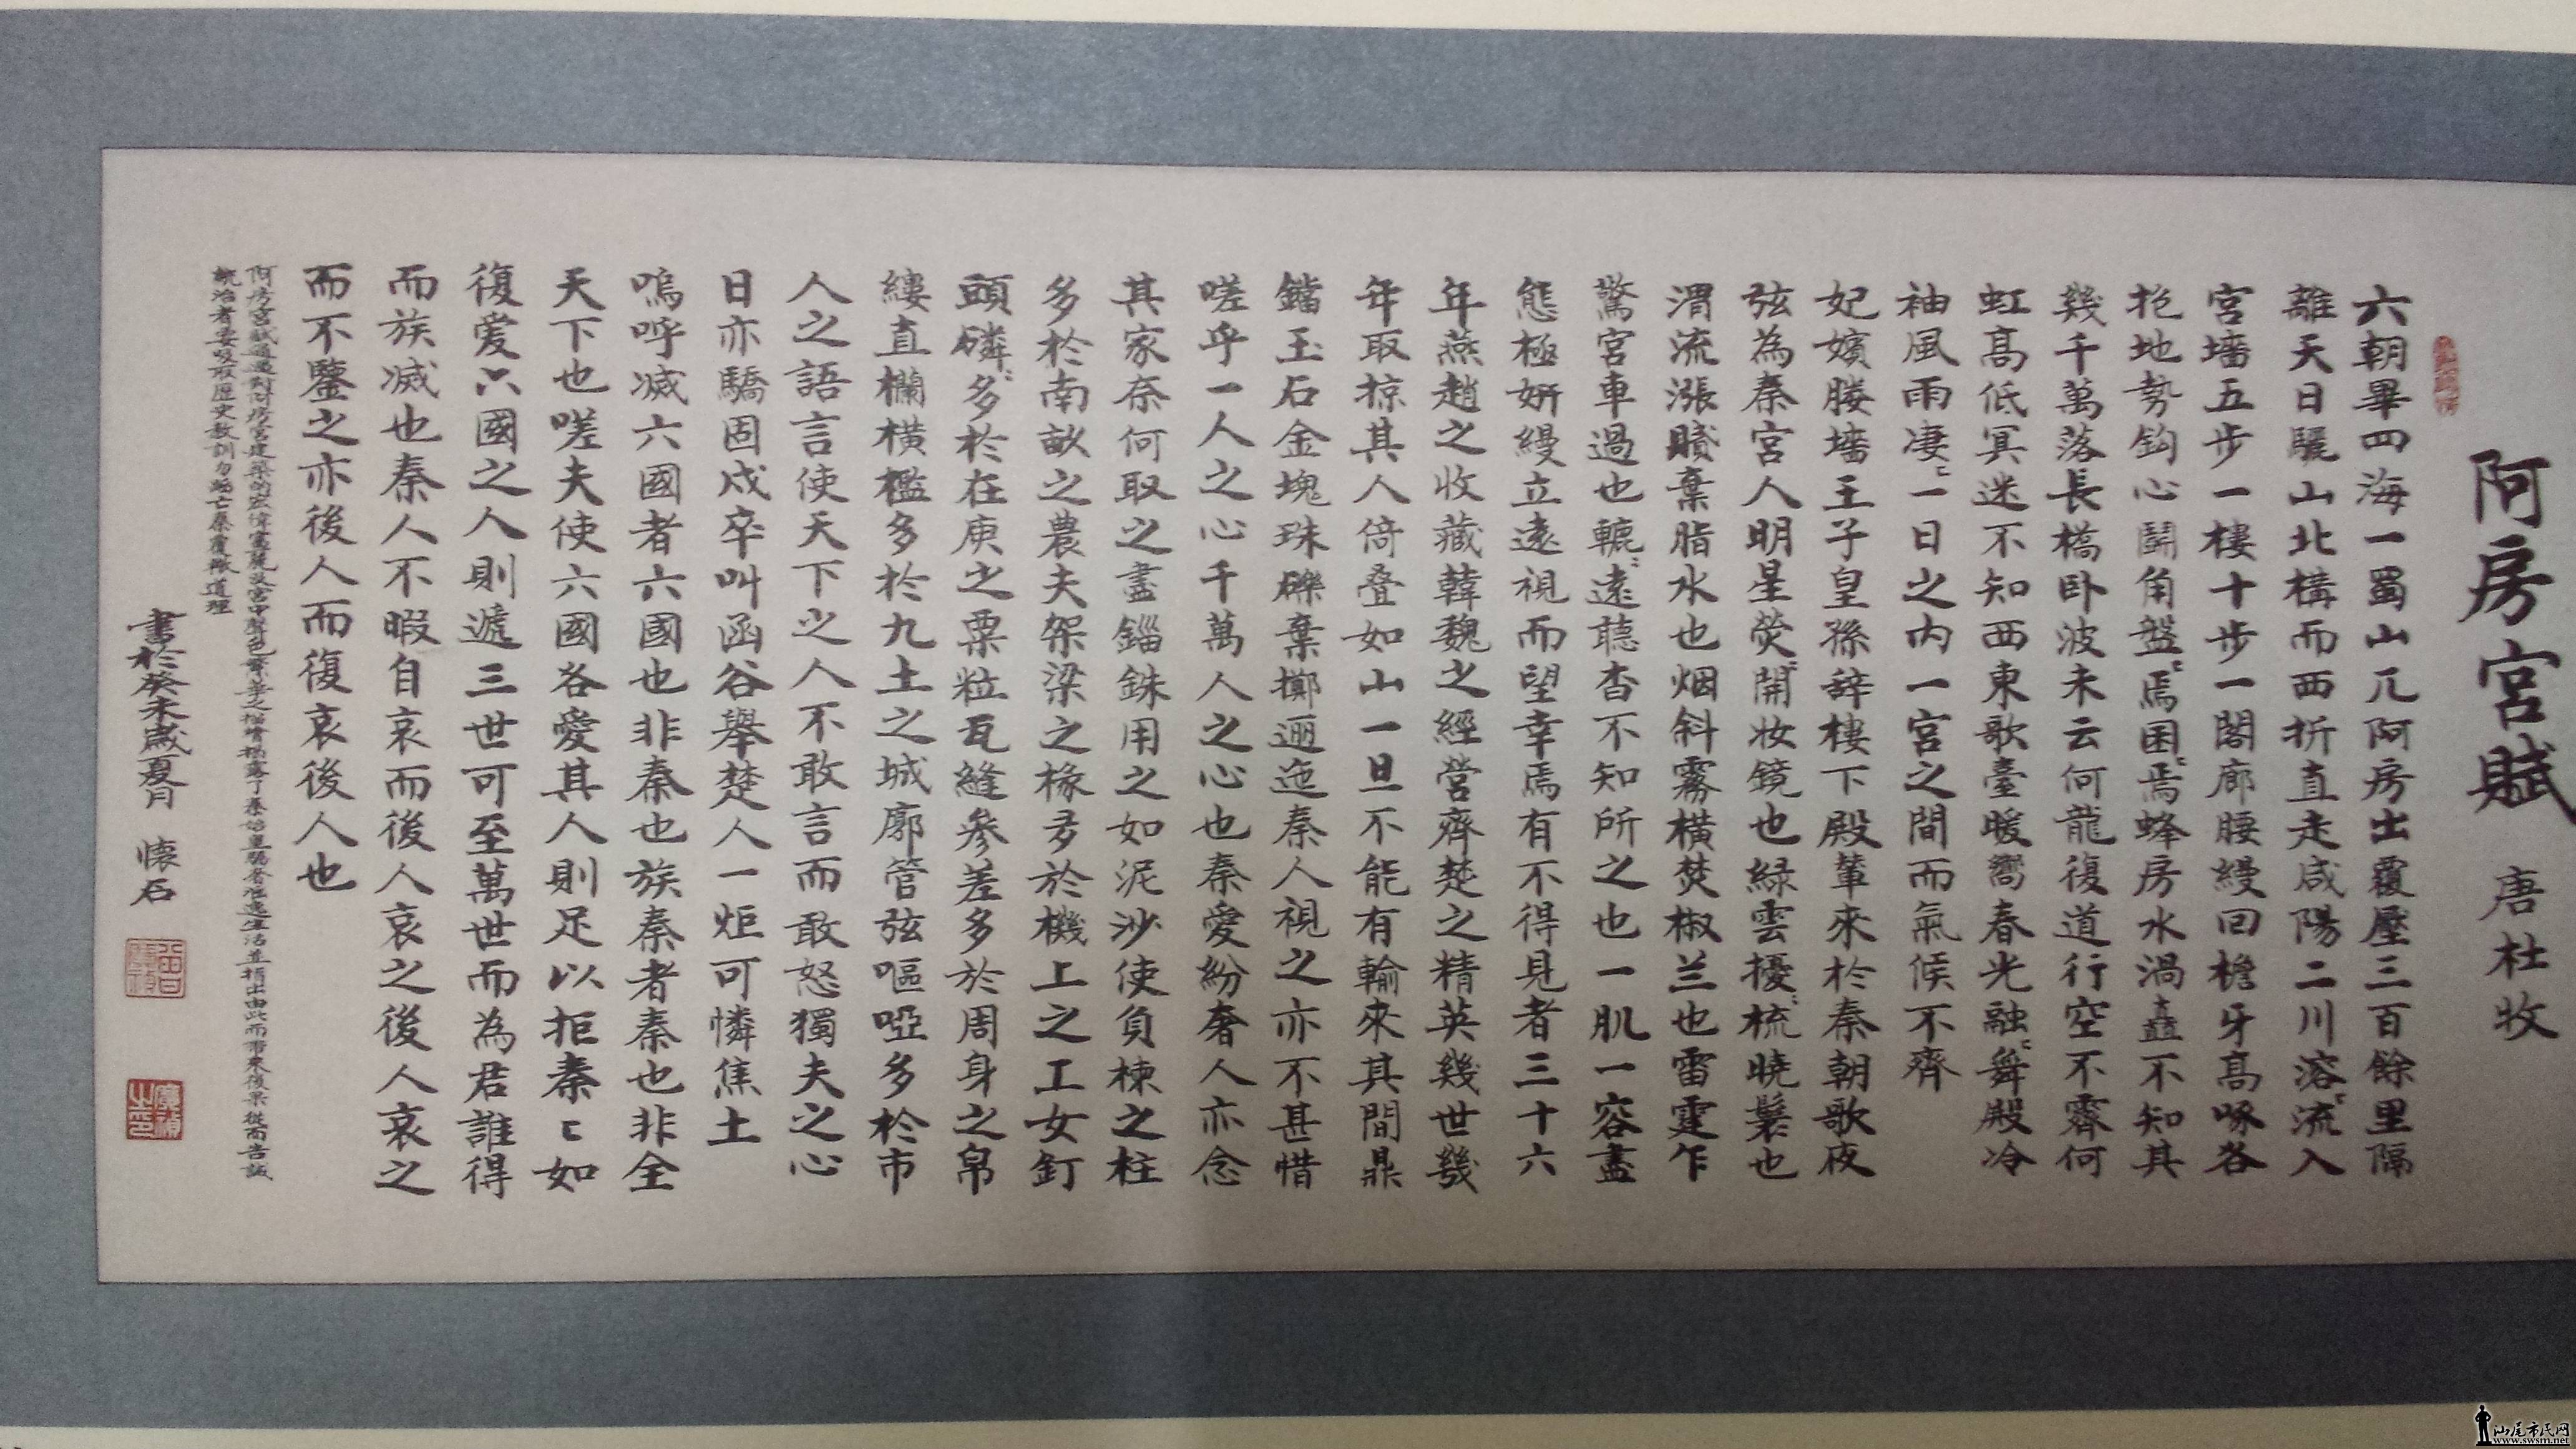 阿房宮賦 唐杜牧
六朝畢四海一蜀山兀阿房出覆壓三百餘里隔
離天日驪山北構而西折直走咸陽二川溶〻流入
宮墻五步一樓十步一閣廊腰縵回檐牙高啄各
抱地勢鈎心鬪角盤〻焉困〻焉蜂房水渦矗不知其
幾千萬落長橋卧波未云何龍復道行空不霽何
虹高低冥迷不知西東歌臺暖嚮春光融〻舞殿冷
袖風雨凄〻一日之内一宮之間而氣候不齊
妃嬪媵墻王子皇孫辭樓下殿輦來於秦朝歌夜
弦為秦宮人明星熒〻開妝鏡也緑雲擾〻梳曉鬟也
渭流漲膩棄脂水也烟斜霧橫焚椒兰也雷霆乍
驚宮車過也轆〻遠聽杳不知所之也一肌一容盡
態極妍縵立遠視而望幸焉有不得見者三十六
年燕趙之收藏韓魏之經營齊楚之精英幾世幾
年取掠其人倚叠如山一旦不能有輸來其間鼎
鐺玉石金塊珠礫棄擲邐迤秦人視之亦不甚惜
嗟乎一人之心千萬人之心也秦愛紛奢人亦念
其家奈何取之盡錙銖用之如泥沙使負棟之柱
多於南畝之農夫架梁之椽多於機上之工女釘
頭磷〻多於在庾之粟粒瓦縫參差多於周身之帛
縷直欄橫檻多於九土之城廓管弦嘔啞多於市
人之語言使天下之人不敢言而敢怒獨夫之心
日亦驕固戍卒叫函谷舉楚人一炬可憐焦土
嗚呼滅六國者六國也非秦也族秦者秦也非全
天下也嗟夫使六國各愛其人則足以拒秦〻如
復爱六國之人則遞三世可至萬世而為君誰得
而族滅也秦人不暇自哀而後人哀之後人哀之
而不鑒之亦後人而復哀後人也
阿房宮賦通過對阿房宮建築的宏偉富麗及宮中聲色繁華之描寫揭露了秦始皇驕奢淫逸生活並指出由此而帶來後果從而告誡
統治者要吸取歷史教訓勿蹈亡秦覆轍道理
書於癸未歲夏月 懷石
汕尾市民网
www.swsm.net